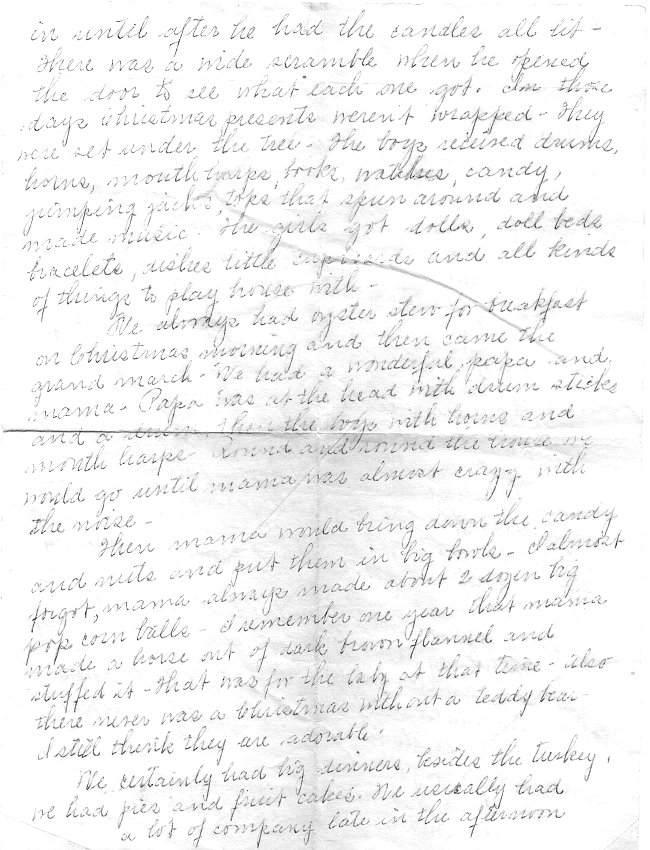 in until after he had the candles all lit -
There was a wide scramble when he opened
the door to see what each one got. In those
days Christmas presents weren't wrapped - They
were set under the tree - The boys received drums,
horns, mouth harps, books, watches, candy,
jumping jacks, tops that spun around and
made music. The girls got dolls, doll beds
bracelets, dishes little cupboards and all kinds
of things to play house with -
We always had oyster stew for breakfast
on Christmas morning and then came the
grand march - We had a wonderful papa and
mama - Papa was at the head with drum sticks
and a drum, then the boys with horns and
mouth harps - Round and round the house we
would go until mama was almost crazy with
the noise -
Then mama would bring down the candy
and nuts and put them in big bowls - I almost
forgot, mama always made about 2 dozen big
pop corn balls - I remember one year that mama
made a horse out of dark brown flannel and
stuffed it - that was for the baby at that time - also
there never was a Christmas without a teddy bear -
I still think they are adorable.
We certainly had big dinners, besides the turkey,
we had pies and fruit cakes. We usually had
a lot of company late in the afternoon